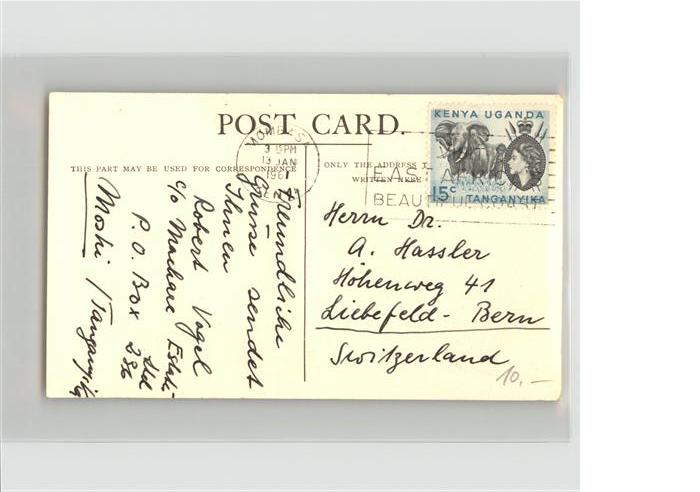 POST CARD.
THIS PART MAY BE USED FOR CORRESPONDENCE
ONLY THE ADDRESS
WRITTEN HERE
KENYA UGANDA
15c TANGANYIKA
MOMBASA
3 PM
13 JAN
1961
EAST
BEAUTIFUL
Freundliche
Grüsse sendet
Ihnen
Robert Vogel
c/o Machare Estate
Ltd
P. O. Box 286
Moshi / Tanganyika
Herrn Dr.
A. Hassler
Höhenweg 41
Liebefeld - Bern
Switzerland
10.-